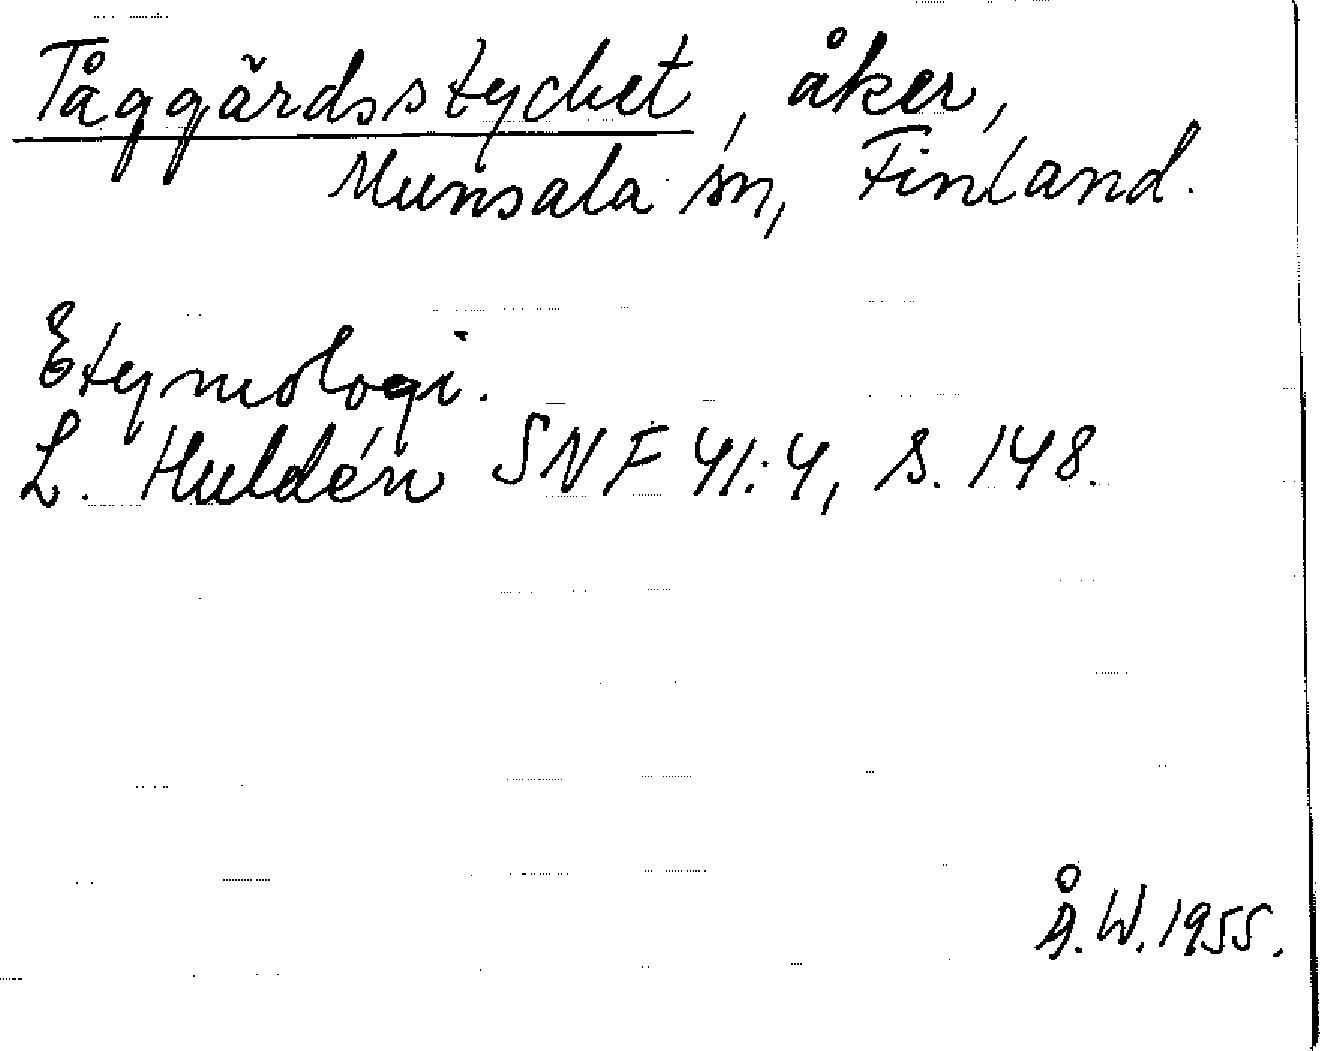 Tåggärdsstycket, åker,
Munsala sn, Finland.
Etymologi.
L. Huldén SNF 41:4, s. 148.
Å.W. 1955.